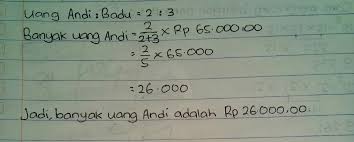 Uang Andi : Badu = 2 : 3
Banyak uang Andi = 2/2+3 x Rp 65.000,00
= 2/5 x 65.000
= 26.000
Jadi, banyak uang Andi adalah Rp 26.000,00.